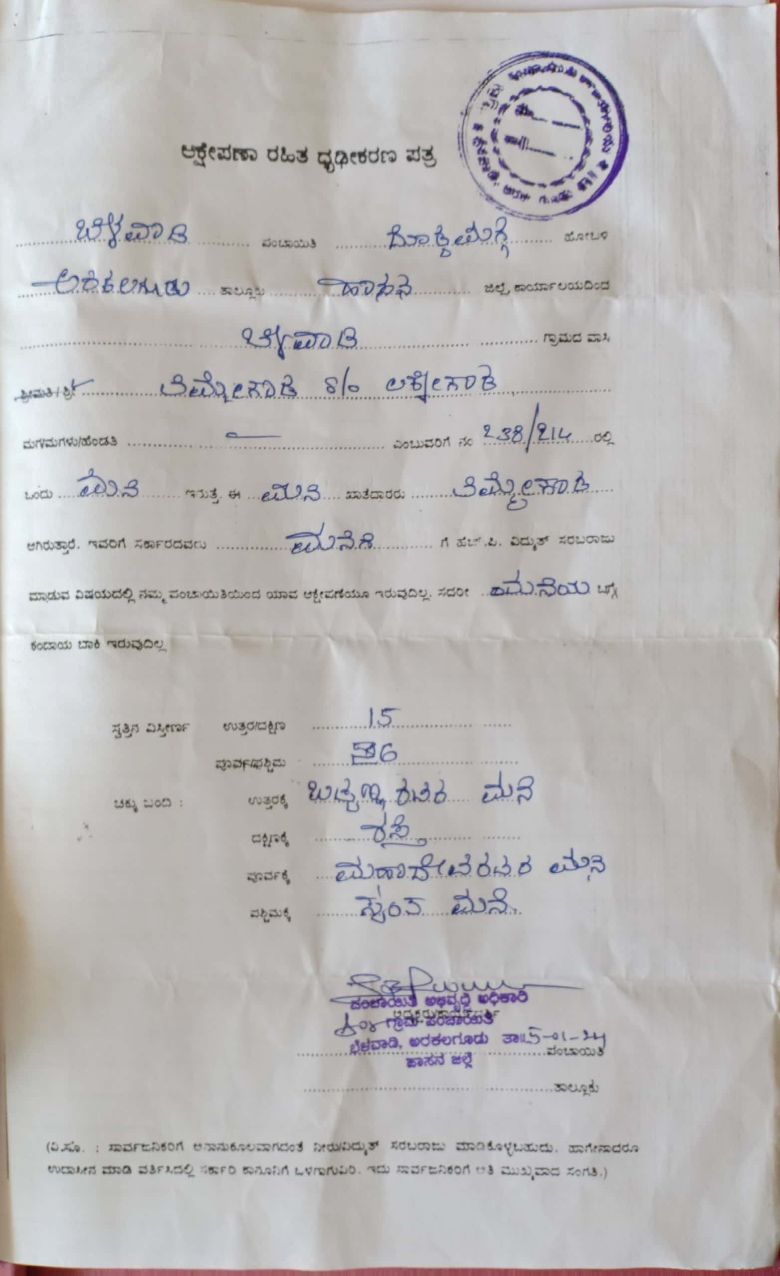 ಆಕ್ಷೇಪಣಾ ರಹಿತ ಧೃಢೀಕರಣ ಪತ್ರ
ಬೆಳವಾಡಿ ಪಂಚಾಯಿತಿ ದೊಡ್ಡಮಗ್ಗೆ ಹೋಬಳಿ
ಅರಕಲಗೂಡು ತಾಲ್ಲೂಕು ಹಾಸನ ಜಿಲ್ಲೆ, ಕಾರ್ಯಾಲಯದಿಂದ
ಬೆಳವಾಡಿ ಗ್ರಾಮದ ವಾಸಿ
ಶ್ರೀಮತಿ/ಶ್ರೀ ತಿಮ್ಮೇಗೌಡ S/o ಲಕ್ಕೇಗೌಡ
ಮಗ/ಮಗಳು/ಹೆಂಡತಿ — ಎಂಬುವರಿಗೆ ನಂ 238/214 ರಲ್ಲಿ
ಒಂದು ಮನೆ ಇರುತ್ತೆ. ಈ ಮನೆ ಖಾತೆದಾರರು ತಿಮ್ಮೇಗೌಡ
ಆಗಿರುತ್ತಾರೆ. ಇವರಿಗೆ ಸರ್ಕಾರದವರು ಮನೆಗೆ ಗೆ ಹೆಚ್.ಪಿ. ವಿದ್ಯುತ್ ಸರಬರಾಜು
ಮಾಡುವ ವಿಷಯದಲ್ಲಿ ನಮ್ಮ ಪಂಚಾಯಿತಿಯಿಂದ ಯಾವ ಆಕ್ಷೇಪಣೆಯೂ ಇರುವುದಿಲ್ಲ. ಸದರೀ ಮನೆಯ ಬಗ್ಗೆ
ಕಂದಾಯ ಬಾಕಿ ಇರುವುದಿಲ್ಲ
ಸ್ವತ್ತಿನ ವಿಸ್ತೀರ್ಣ ಉತ್ತರ/ದಕ್ಷಿಣ 15
ಪೂರ್ವ/ಪಶ್ಚಿಮ 36
ಚಕ್ಕು ಬಂದಿ : ಉತ್ತರಕ್ಕೆ ರವರ ಮನೆ
ದಕ್ಷಿಣಕ್ಕೆ ರಸ್ತೆ
ಪೂರ್ವಕ್ಕೆ ಮಹಾದೇವರವರ ಮನೆ
ಪಶ್ಚಿಮಕ್ಕೆ ಸ್ವಂತ ಮನೆ.
ಪಂಚಾಯಿತಿ ಅಭಿವೃದ್ಧಿ ಅಧಿಕಾರಿ
ಗ್ರಾಮ ಪಂಚಾಯಿತಿ
ಬೆಳವಾಡಿ, ಅರಕಲಗೂಡು ತಾ॥ 5-01-24
ಪಂಚಾಯಿತಿ
ಹಾಸನ ಜಿಲ್ಲೆ
ತಾಲ್ಲೂಕು
(ವಿ.ಸೂ. : ಸಾರ್ವಜನಿಕರಿಗೆ ಅನಾನುಕೂಲವಾಗದಂತೆ ನೀರು/ವಿದ್ಯುತ್ ಸರಬರಾಜು ಮಾಡಿಕೊಳ್ಳಬಹುದು. ಹಾಗೇನಾದರೂ
ಉದಾಸೀನ ಮಾಡಿ ವರ್ತಿಸಿದಲ್ಲಿ ಸರ್ಕಾರಿ ಕಾನೂನಿಗೆ ಒಳಗಾಗುವಿರಿ. ಇದು ಸಾರ್ವಜನಿಕರಿಗೆ ಅತಿ ಮುಖ್ಯವಾದ ಸಂಗತಿ.)